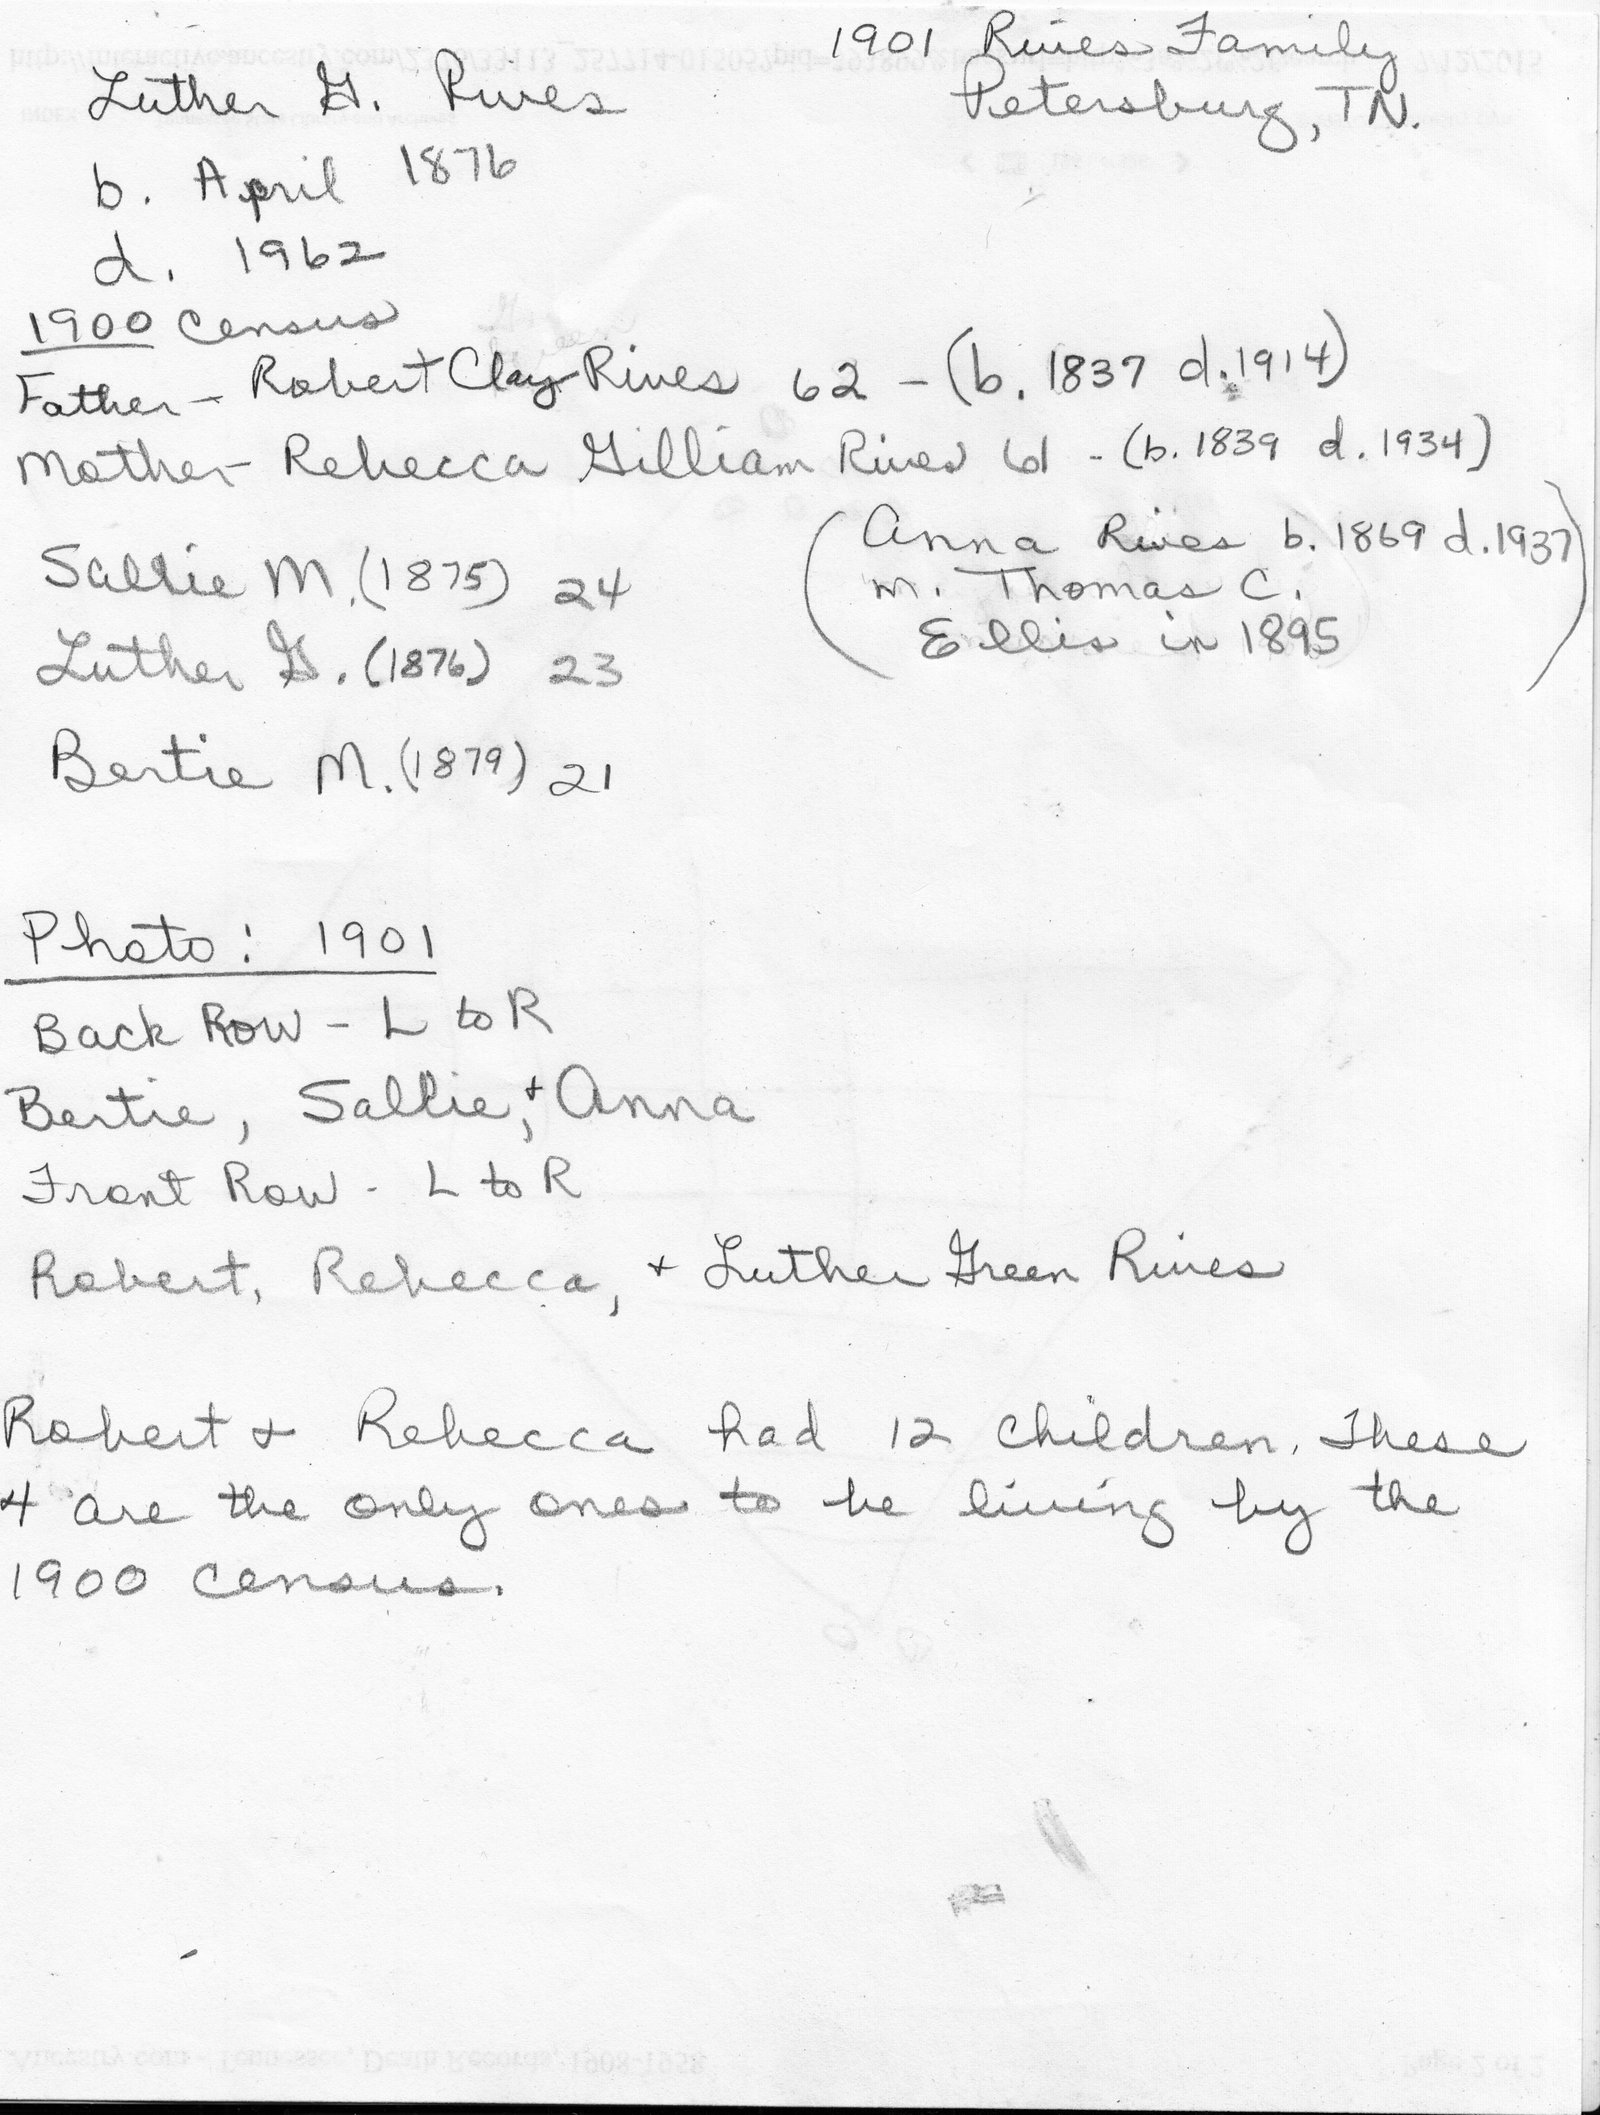 1901 Rives Family
Petersburg, TN.
Luther G. Rives
b. April 1876
d. 1962
1900 Census
Father - Robert Clay Rives 62 - (b. 1837 d. 1914)
Mother - Rebecca Gilliam Rives 61 - (b. 1839 d. 1934)
(Anna Rives b. 1869 d. 1937
m. Thomas C.
Ellis in 1895)
Sallie M. (1875) 24
Luther G. (1876) 23
Bertie M. (1879) 21
Photo: 1901
Back Row - L to R
Bertie, Sallie, + Anna
Front Row - L to R
Robert, Rebecca, + Luther Green Rives
Robert + Rebecca had 12 children. These
4 are the only ones to be living by the
1900 census.
Ancestry.com - Tennessee, Death Records, 1908-1958
Page 2 of 2